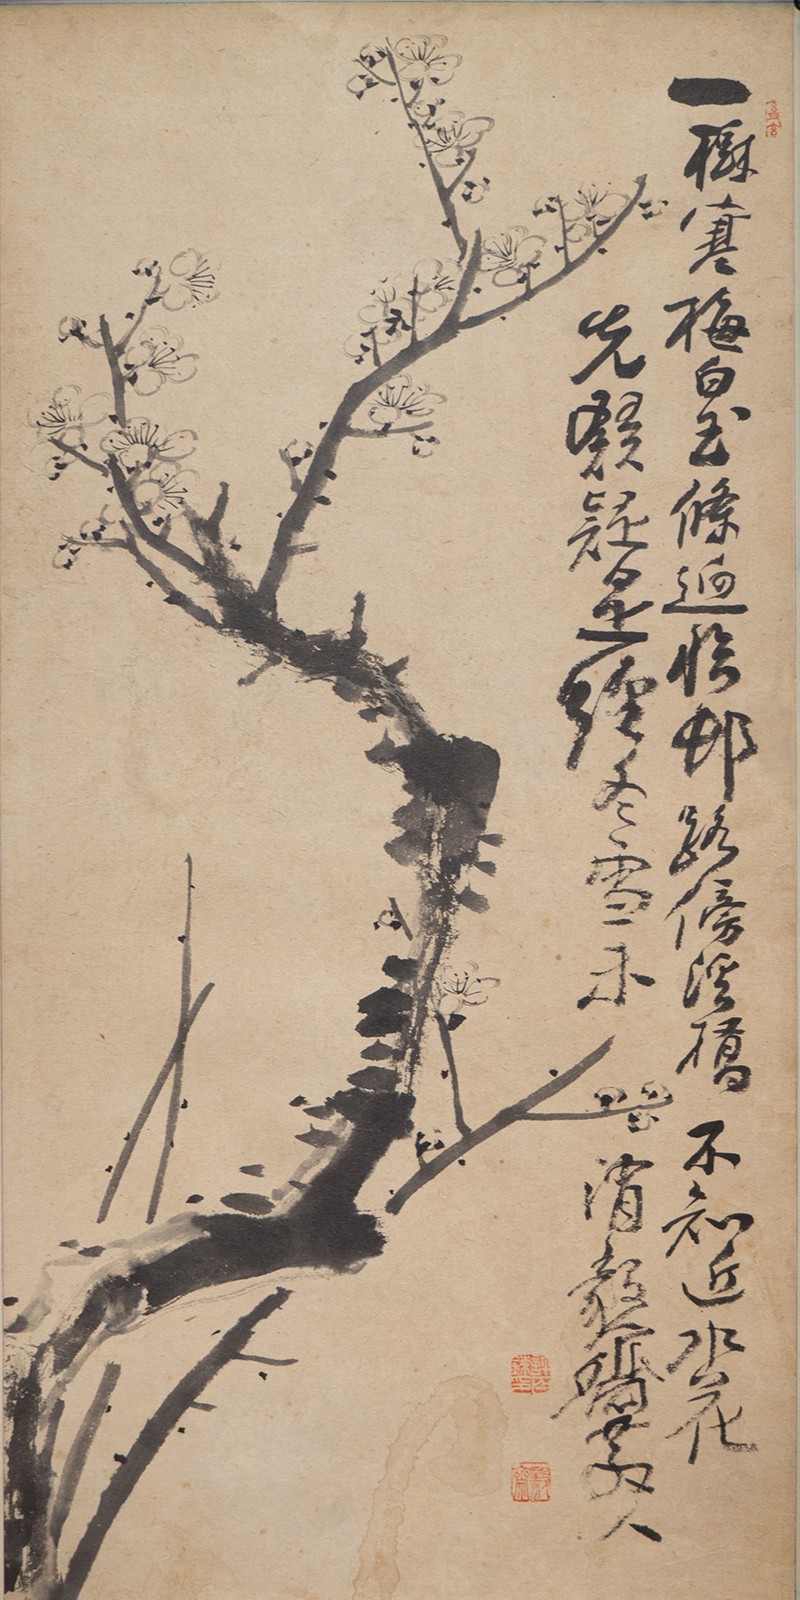 一樹寒梅白玉條迥臨邨路傍溪橋不知近水花
先發疑是經冬雪未消